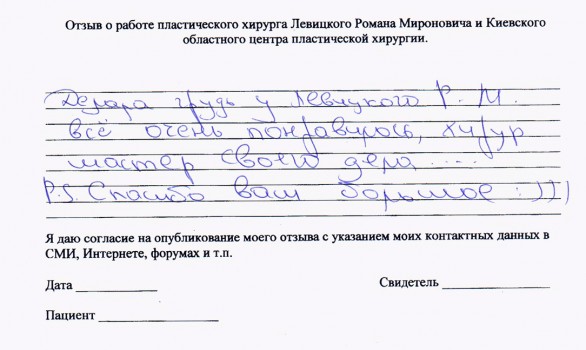 Отзыв о работе пластического хирурга Левицкого Романа Мироновича и Киевского
областного центра пластической хирургии.
Делала грудь у Левицкого Р. М.
всё очень понравилось, хирург
мастер своего дела ....
P.S. Спасибо вам большое :))))
Я даю согласие на опубликование моего отзыва с указанием моих контактных данных в
СМИ, Интернете, форумах и т.п.
Дата ____________ Свидетель: ____________
Пациент ____________